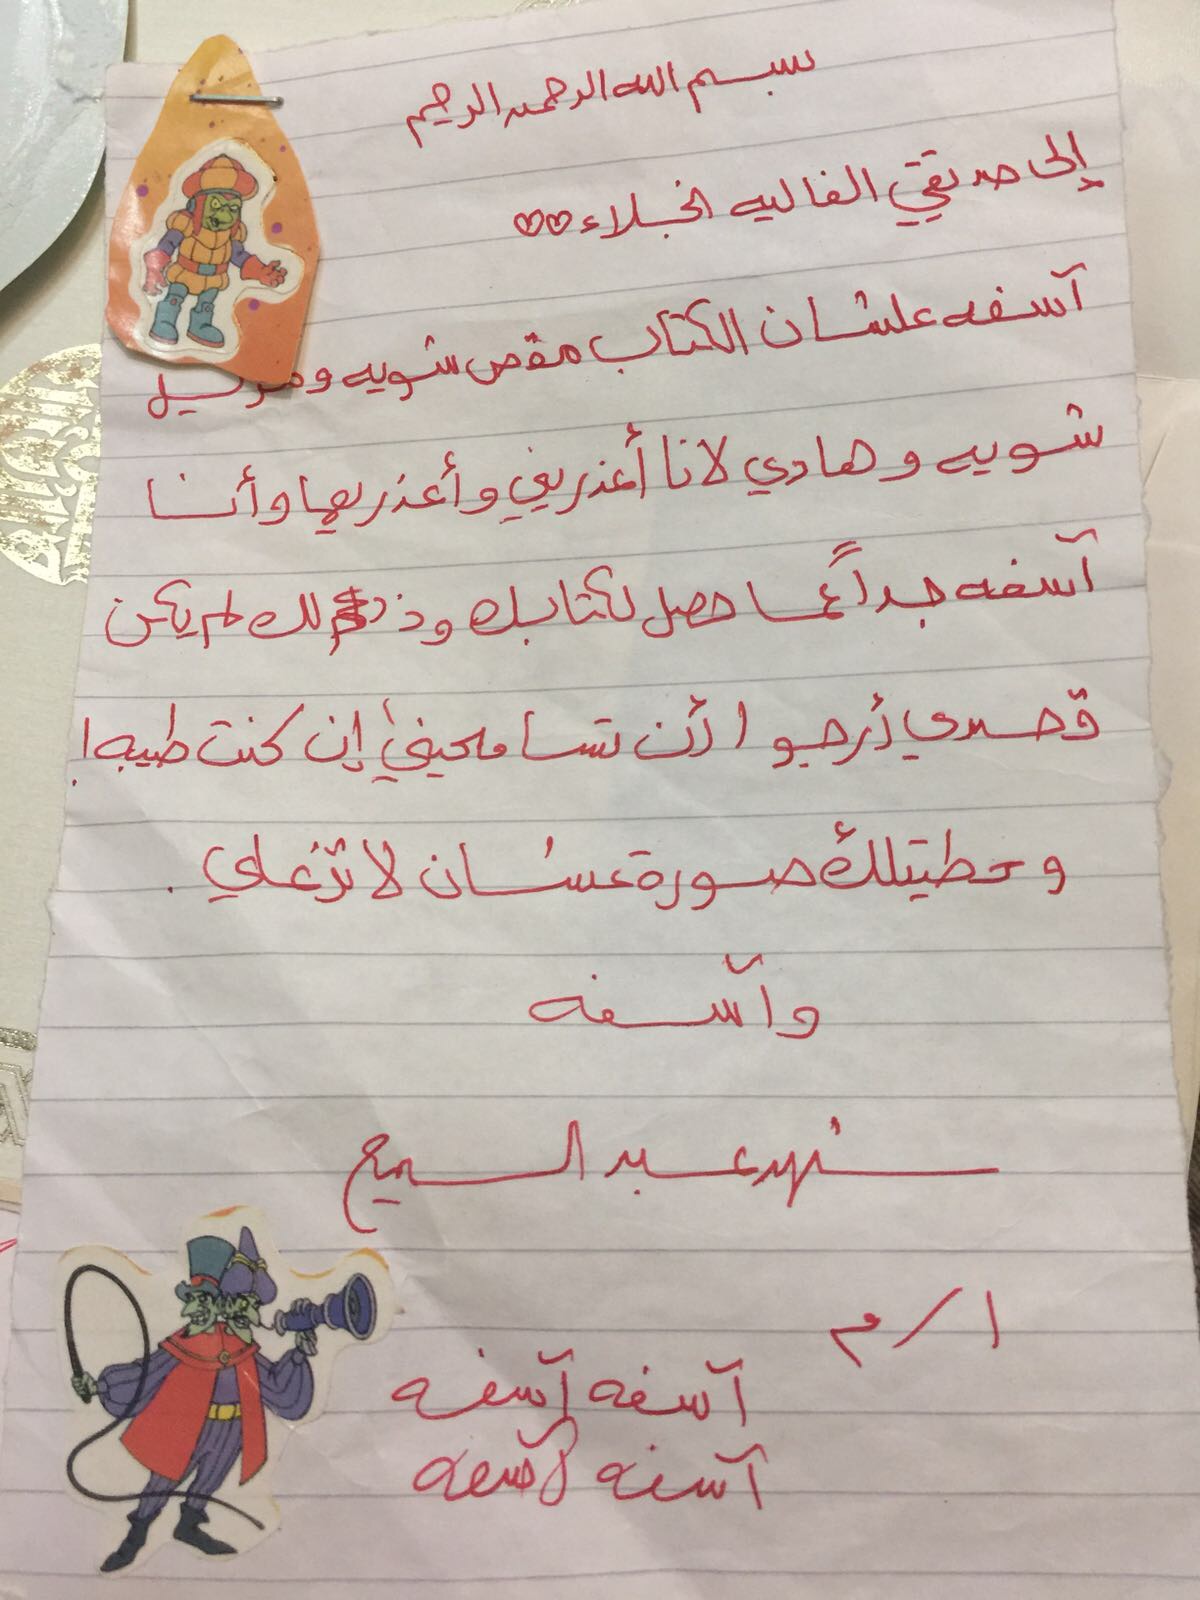 بسم الله الرحمن الرحيم
إلى صديقتي الغاليه نجلاء
آسفه علشان الكتاب مقص شويه
شويه وهادي لانا أعذريني وأعذريها وأنا
آسفه جداً عما حصل لكتابك وذلك لم يكن
قصدي أرجو أن تسامحيني إن كنت طيبه!
وحطيتلك صورة عشان لا تزعلي.
وآسفه
شهد عبد السميع
١/م
آسفه آسفه
آسفه آسفه